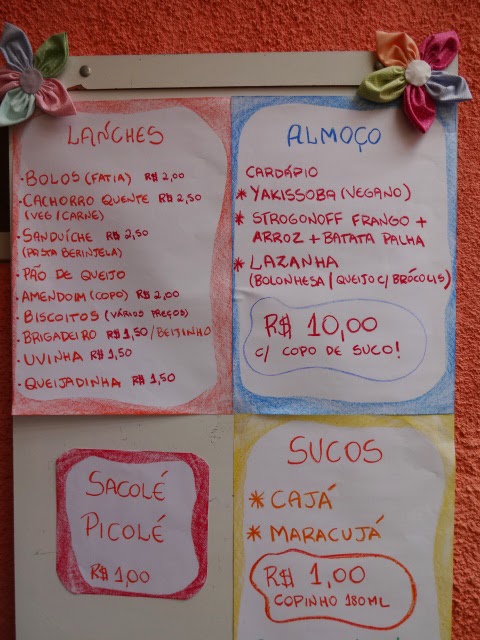 LANCHES
• BOLOS (FATIA) R$ 2,00
• CACHORRO QUENTE R$ 2,50
(VEG / CARNE)
• SANDUÍCHE R$ 2,50
(PASTA BERINJELA)
• PÃO DE QUEIJO
• AMENDOIM (COPO) R$ 2,00
• BISCOITOS (VÁRIOS PREÇOS)
• BRIGADEIRO R$ 1,50 / BEIJINHO
• UVINHA R$ 1,50
• QUEIJADINHA R$ 1,50
ALMOÇO
CARDÁPIO
* YAKISSOBA (VEGANO)
* STROGONOFF FRANGO +
ARROZ + BATATA PALHA
* LAZANHA
(BOLONHESA / QUEIJO C/ BRÓCOLIS)
R$ 10,00
C/ COPO DE SUCO!
SACOLÉ
PICOLÉ
R$ 1,00
SUCOS
* CAJÁ
* MARACUJÁ
R$ 1,00
COPINHO 180ML